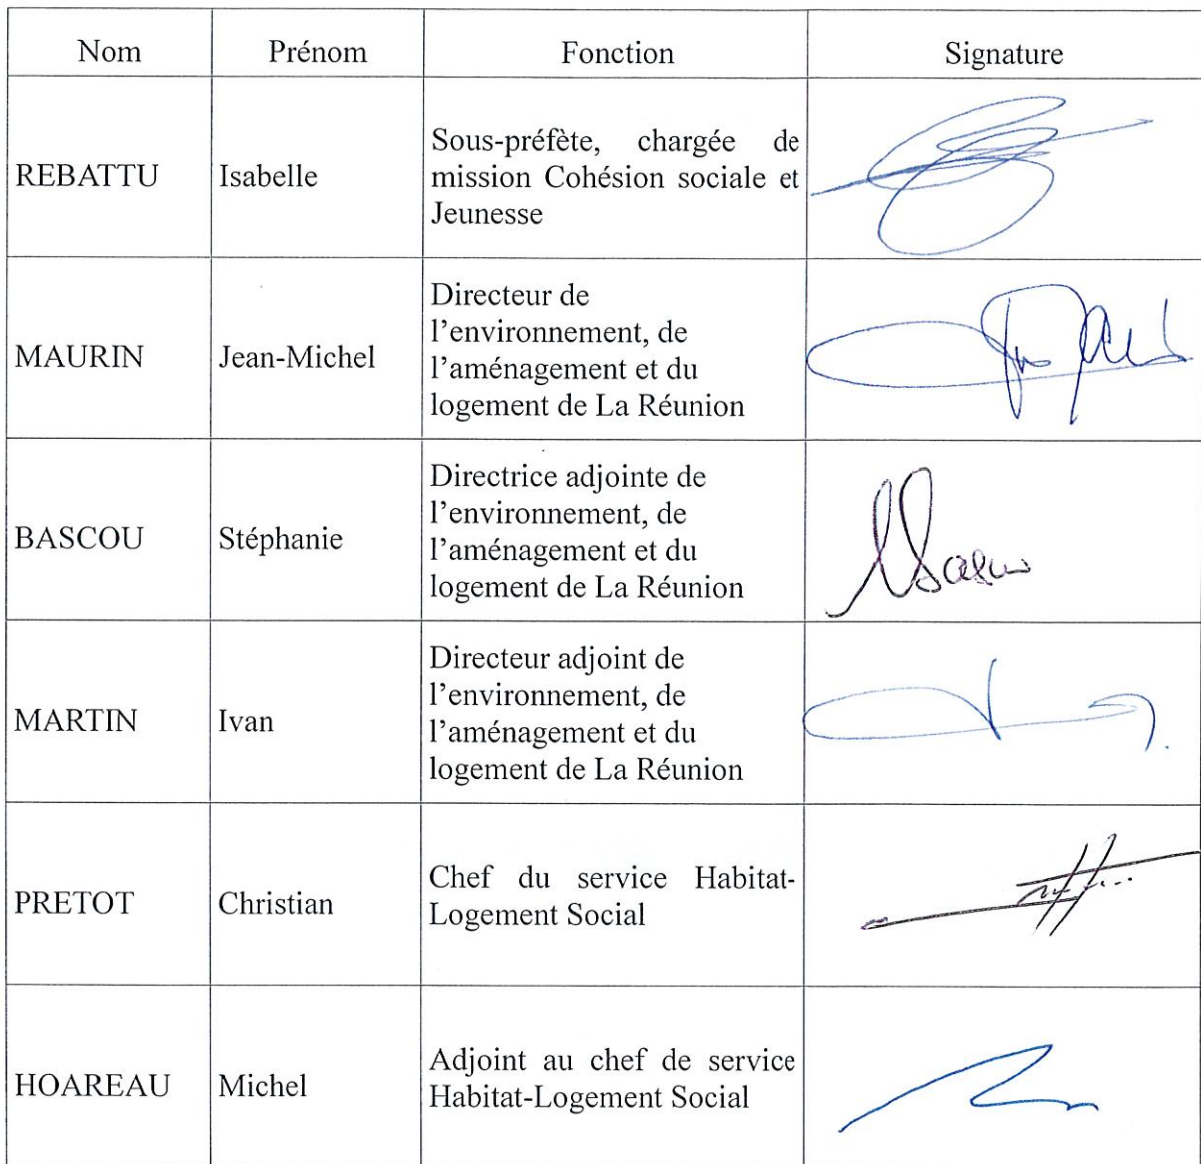 Nom Prénom Fonction Signature
REBATTU Isabelle
Sous-préfète, chargée de
mission Cohésion sociale et
Jeunesse
MAURIN Jean-Michel
Directeur de
l’environnement, de
l’aménagement et du
logement de La Réunion
BASCOU Stéphanie
Directrice adjointe de
l’environnement, de
l’aménagement et du
logement de La Réunion
MARTIN Ivan
Directeur adjoint de
l’environnement, de
l’aménagement et du
logement de La Réunion
PRETOT Christian
Chef du service Habitat-
Logement Social
HOAREAU Michel
Adjoint au chef de service
Habitat-Logement Social